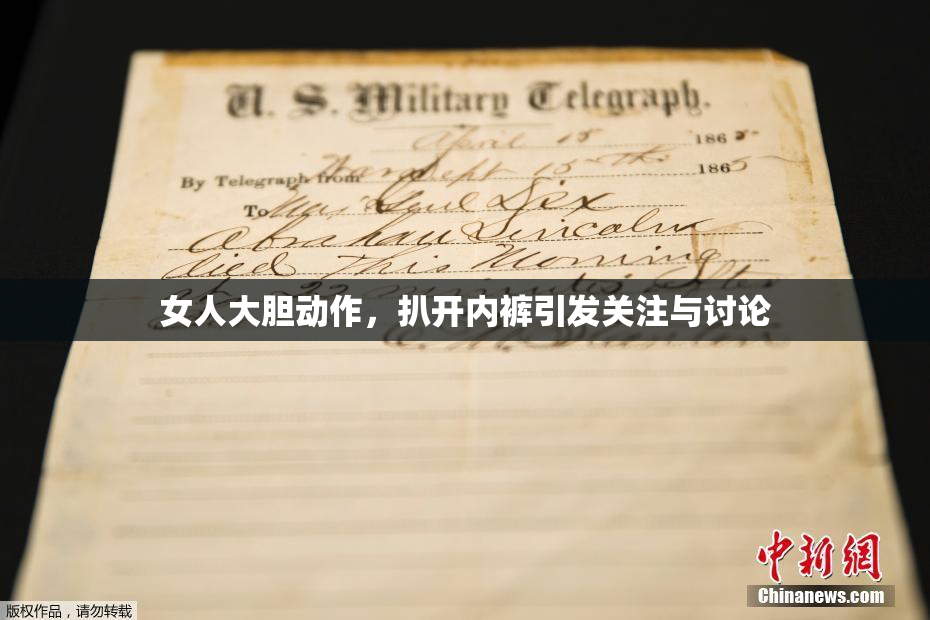 U. S. Military Telegraph.
April 15 1865
By Telegraph from War Dept 15th 1865
To Maj Genl Dix
Abraham Lincoln
died This Morning
at 22 minutes after
女人大胆动作，扒开内裤引发关注与讨论
E. M. Stanton
中新網
Chinanews.com
版权作品，请勿转载